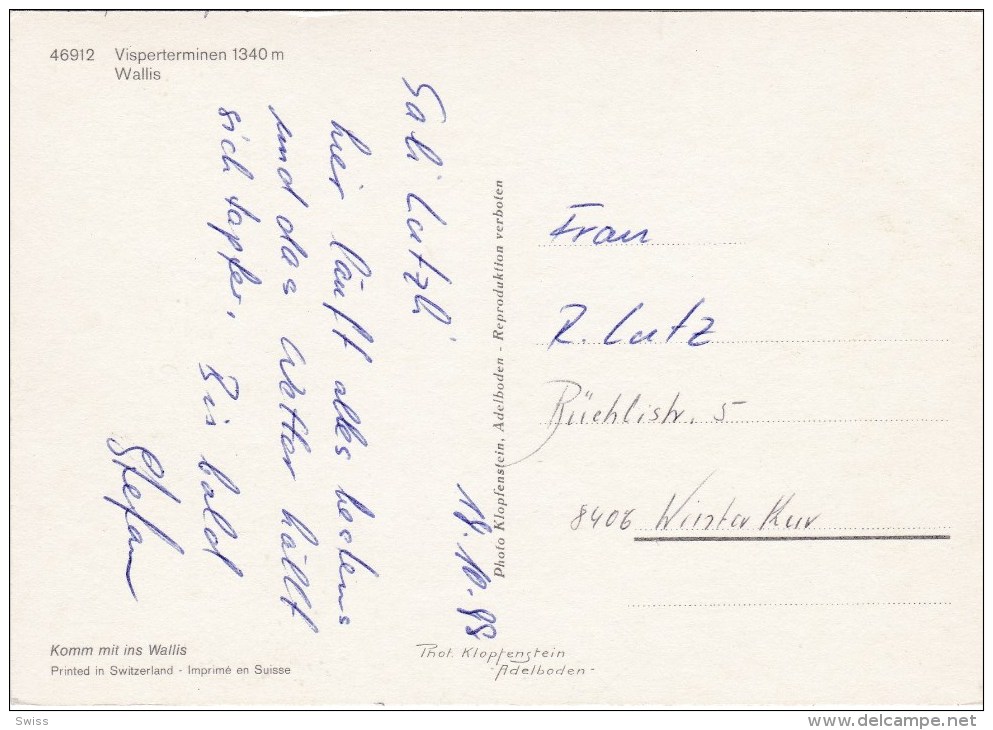 46912 Visperterminen 1340 m
Wallis
18.10.95
Sali Lutzli
hier läuft alles bestens
und das Wetter hällt
sich tapfer. Bis bald
Stefan
Photo Klopfenstein, Adelboden - Reproduktion verboten
Frau
R. Lutz
Rüchlistr. 5
8406 Winterthur
Komm mit ins Wallis
Printed in Switzerland - Imprimé en Suisse
Phot. Klopfenstein
- Adelboden -
Swiss
www.delcampe.net